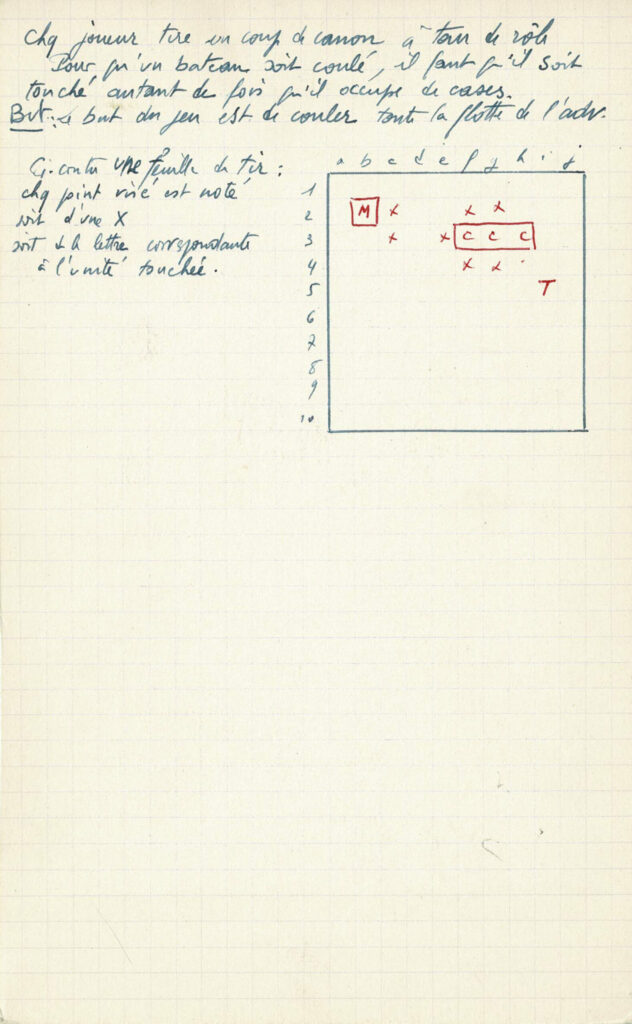 Chq joueur tire un coup de canon à tour de rôle
Pour qu'un bateau soit coulé, il faut qu'il soit
touché autant de fois qu'il occupe de cases.
But: le but du jeu est de couler toute la flotte de l'adv.
Ci-contre une feuille de tir :
chq point visé est noté
soit d'une X
soit d la lettre correspondante
à l'unité touchée.
a b c d e f g h i j
1
2 M x x x
3 x x C C C
4 x x
5 T
6
7
8
9
10